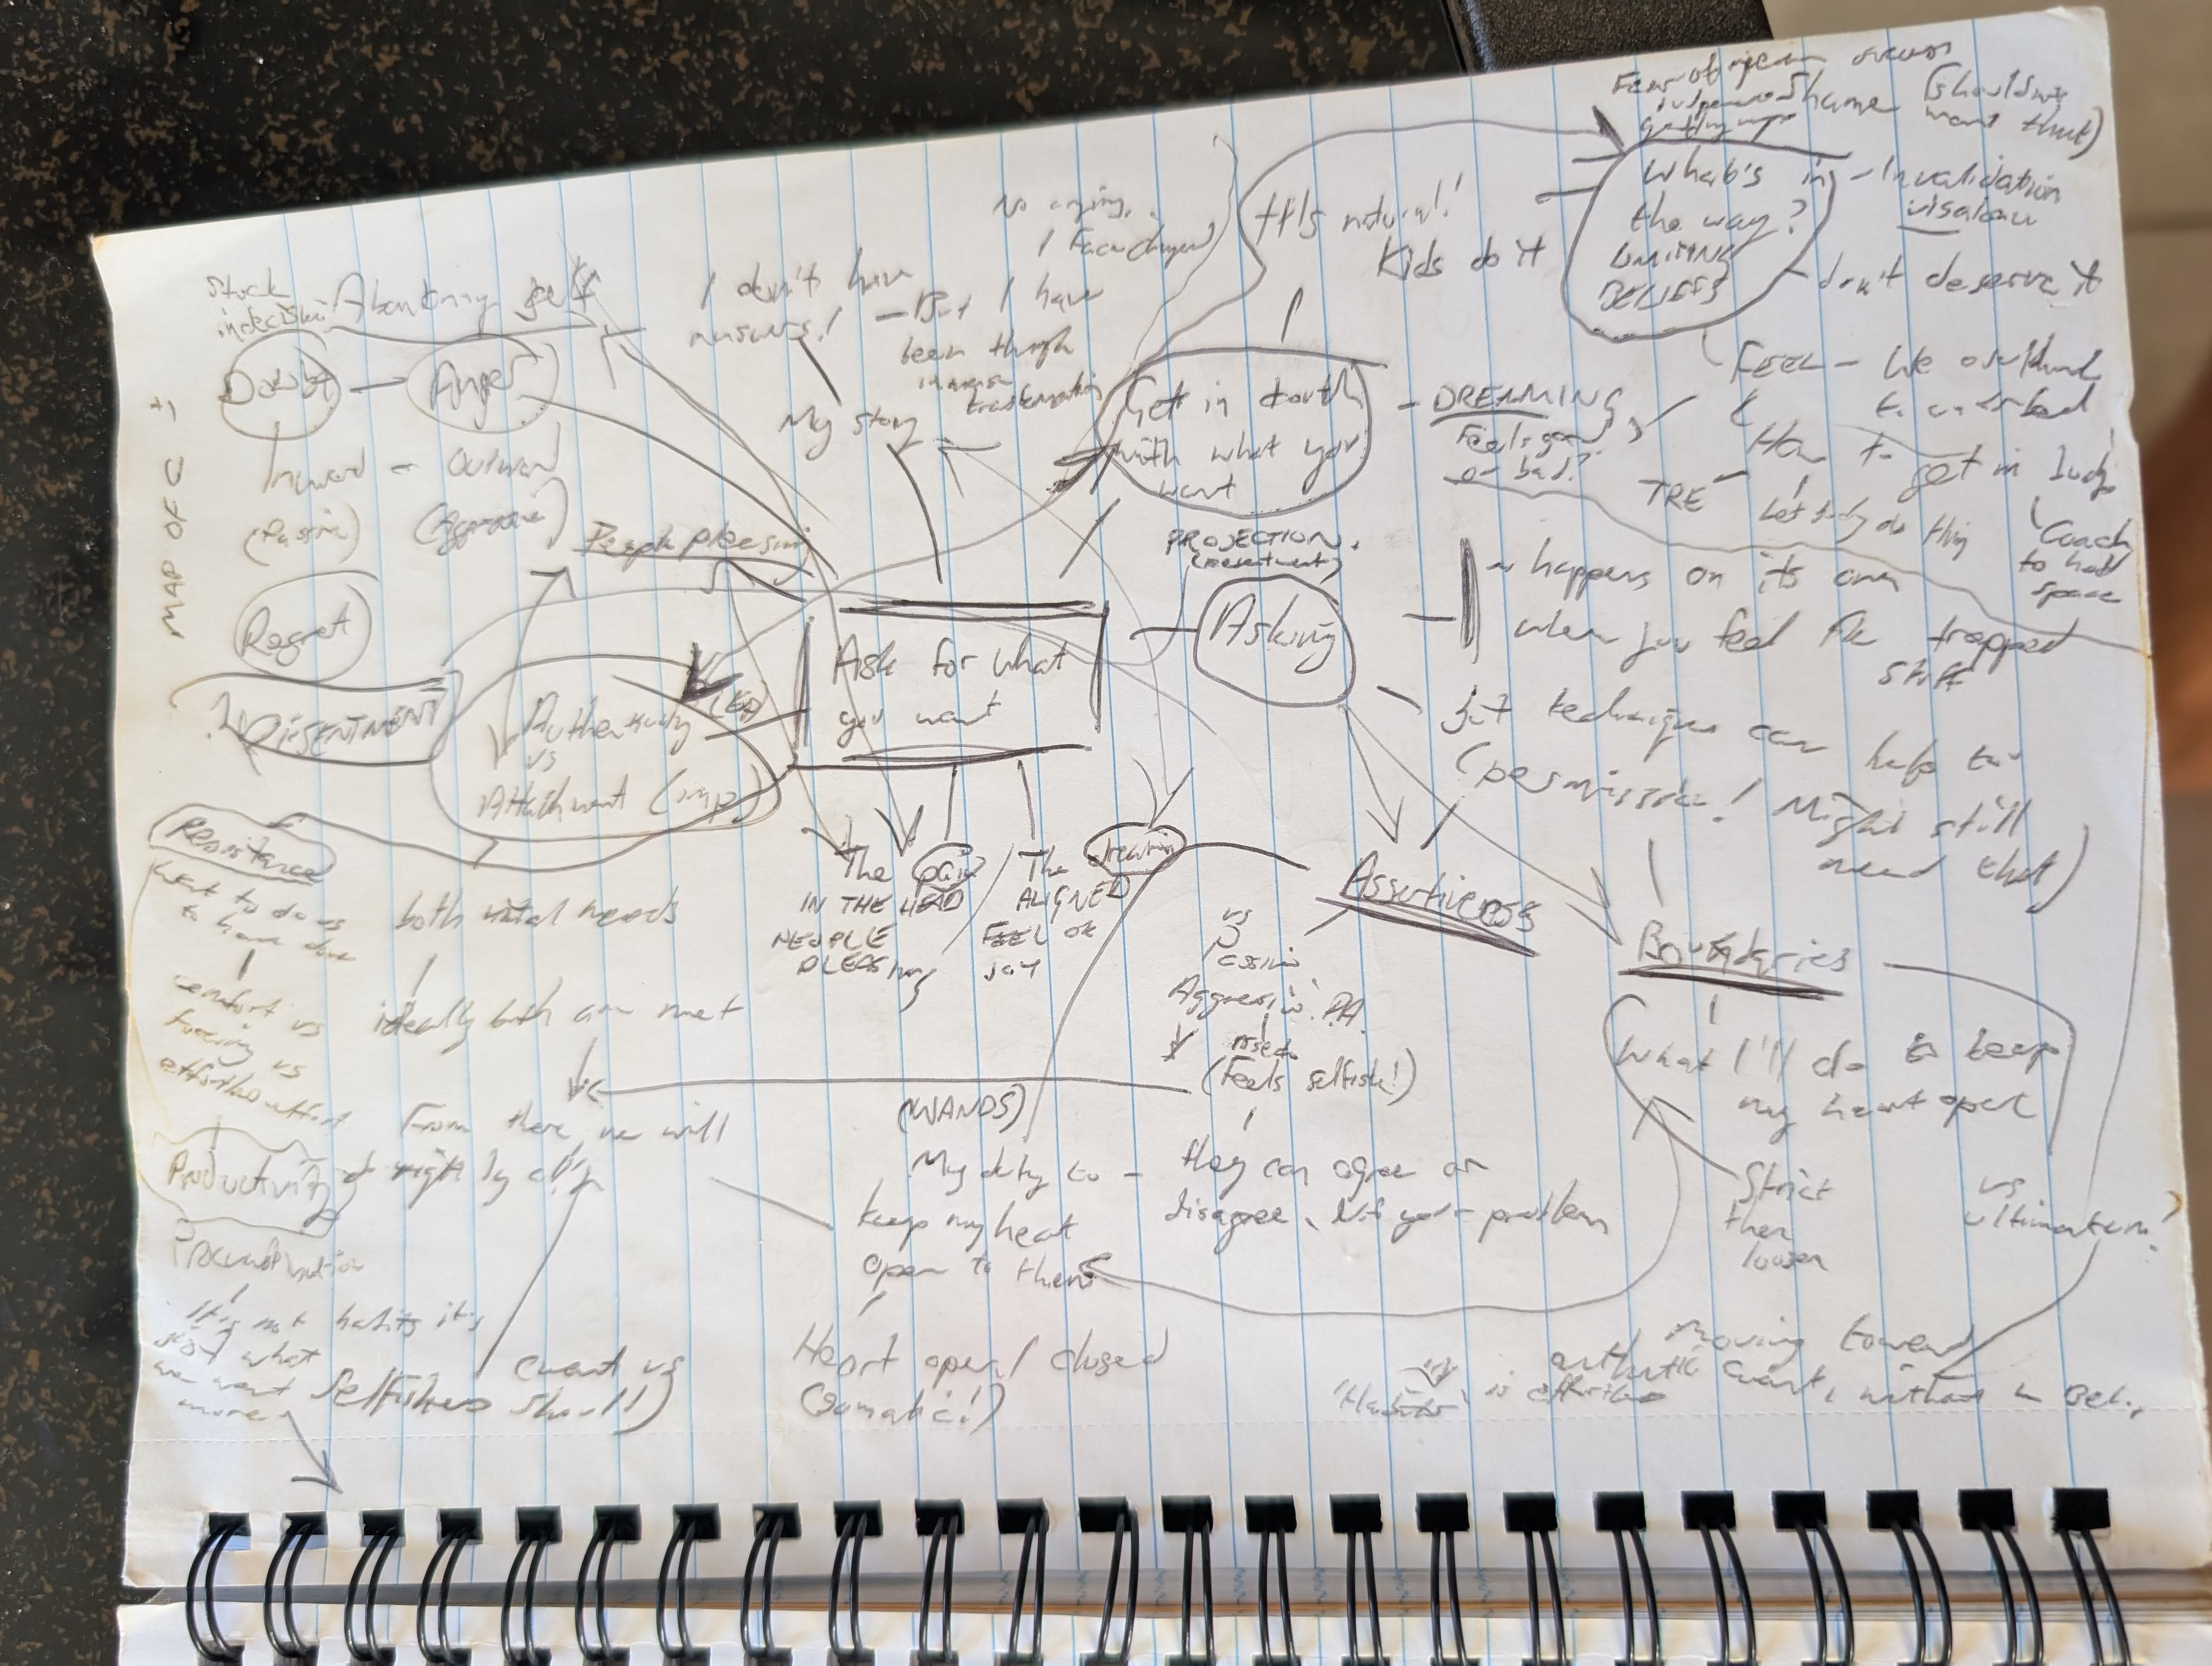 Fear of rejection
Shame (shouldn't
want that)
What's in
the way?
LIMITING
BELIEFS
- Invalidation
- don't deserve it
It's natural!
Kids do it
No crying,
Stuck
Abandoning self
I don't have
answers!
- But I have
been through
immense
transformation
My story
Doubt - Anger
Inward - Outward
(Passive) (Aggressive)
MAP OF C +
Get in touch
with what you
want
- DREAMING
Feels good
or bad?
FEEL - We
How to get in body
TRE
Let body do thing
Coach
to hold
space
People pleasing
PROJECTION
(resentment)
Regret
RESENTMENT
Authenticity
vs
Attachment (imp)
Ask for what
you want
Asking
happens on its own
when you feel the trapped
stuff
but technique can help too
(permission! Might still
need that)
Resistance
want to do vs
to have done
comfort vs
forcing vs
effortless effort
both vital needs
ideally both are met
From there, we will
do right by
The pain
IN THE HEAD
PEOPLE
PLEASING
The dream
ALIGNED
FEEL OK
JOY
Assertiveness
vs
Passive
Aggressive P.A.
(Feels selfish!)
Boundaries
What I'll do to keep
my heart open
Strict
then
looser
vs
ultimatum?
(WANDS)
My duty to -
keep my heart
open to them
they can agree or
disagree. Not your problem
Heart open / closed
(Somatic!)
Productivity
Procrastination
It's not habits it's
just what
we want
more
Selfishness (want vs
should)
moving toward
authentic want, without
is effortless